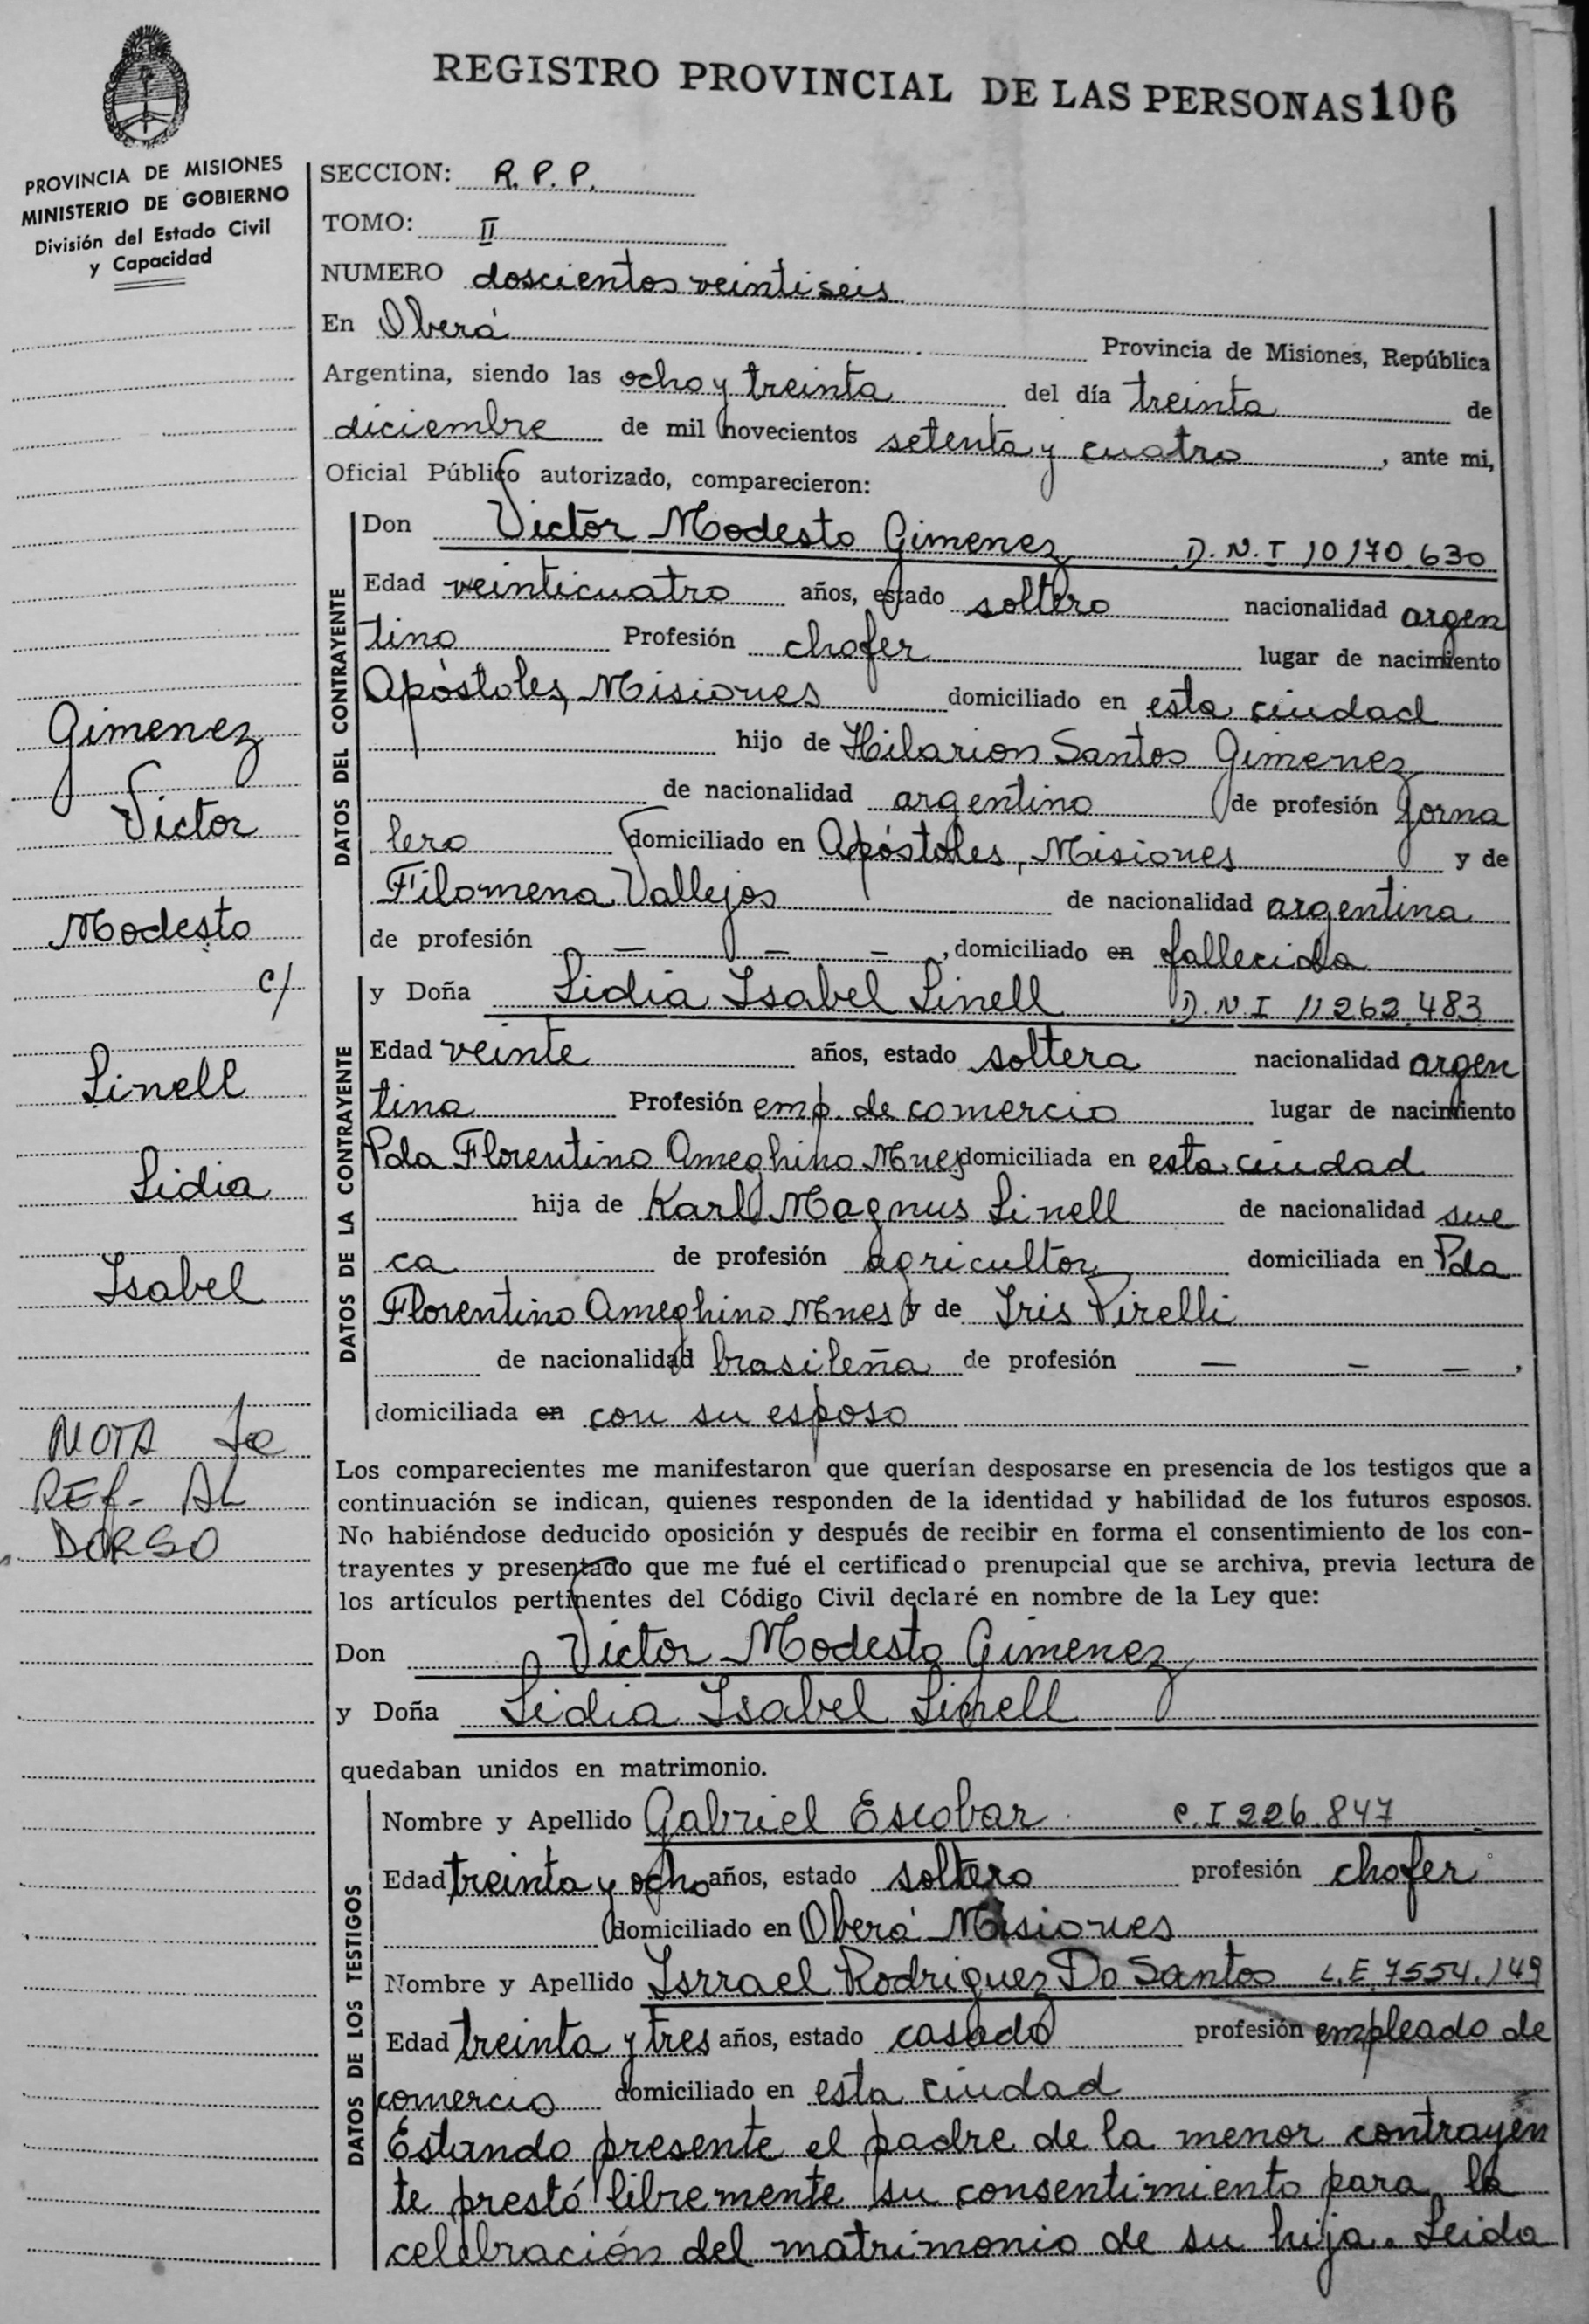 REGISTRO PROVINCIAL DE LAS PERSONAS 106
PROVINCIA DE MISIONES
MINISTERIO DE GOBIERNO
División del Estado Civil
y Capacidad
SECCION: R. P. P.
TOMO: II
NUMERO doscientos veintiseis
En Oberá Provincia de Misiones, República
Argentina, siendo las ocho y treinta del día treinta de
diciembre de mil novecientos setenta y cuatro, ante mi,
Oficial Público autorizado, comparecieron:
DATOS DEL CONTRAYENTE
Don Victor Modesto Gimenez D.N.I 10170.630
Edad veinticuatro años, estado soltero nacionalidad argen
tino Profesión chofer lugar de nacimiento
Apóstoles, Misiones domiciliado en esta ciudad
hijo de Hilarion Santos Gimenez
de nacionalidad argentino de profesión jorna
lero domiciliado en Apóstoles, Misiones y de
Filomena Vallejos de nacionalidad argentina
de profesión — — —, domiciliado en fallecida
DATOS DE LA CONTRAYENTE
y Doña Lidia Isabel Linell D.N.I 11262.483
Edad veinte años, estado soltera nacionalidad argen
tina Profesión emp. de comercio lugar de nacimiento
Pda Florentino Ameghino Mnes domiciliada en esta ciudad
hija de Karl Magnus Linell de nacionalidad sue
ca de profesión agricultor domiciliada en Pda
Florentino Ameghino Mnes y de Iris Pirelli
de nacionalidad brasileña de profesión — — —,
domiciliada en con su esposo
Los comparecientes me manifestaron que querían desposarse en presencia de los testigos que a
continuación se indican, quienes responden de la identidad y habilidad de los futuros esposos.
No habiéndose deducido oposición y después de recibir en forma el consentimiento de los con-
trayentes y presentado que me fué el certificado prenupcial que se archiva, previa lectura de
los artículos pertinentes del Código Civil declaré en nombre de la Ley que:
Don Victor Modesto Gimenez
y Doña Lidia Isabel Linell
quedaban unidos en matrimonio.
DATOS DE LOS TESTIGOS
Nombre y Apellido Gabriel Escobar C.I 226.847
Edad treinta y ocho años, estado soltero profesión chofer
domiciliado en Oberá Misiones
Nombre y Apellido Isrrael Rodriguez Do Santos L.E. 7554.149
Edad treinta y tres años, estado casado profesión empleado de
comercio domiciliado en esta ciudad
Estando presente el padre de la menor contrayen
te prestó libremente su consentimiento para la
celebración del matrimonio de su hija. Leida
Gimenez
Victor
Modesto
c/
Linell
Lidia
Isabel
NOTA
REF- AL
DORSO